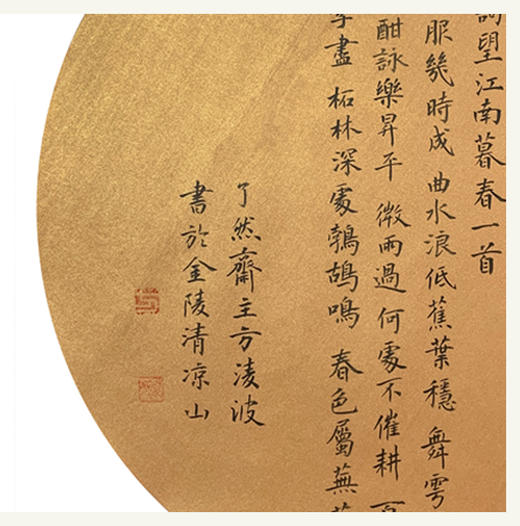 望江南暮春一首
服幾時成 曲水浪低蕉葉穩 舞雩
酣詠樂昇平 微雨過 何處不催耕
盡 柘林深處鵓鴣鳴 春色屬蕪
了然齋主方淩波
書於金陵清凉山